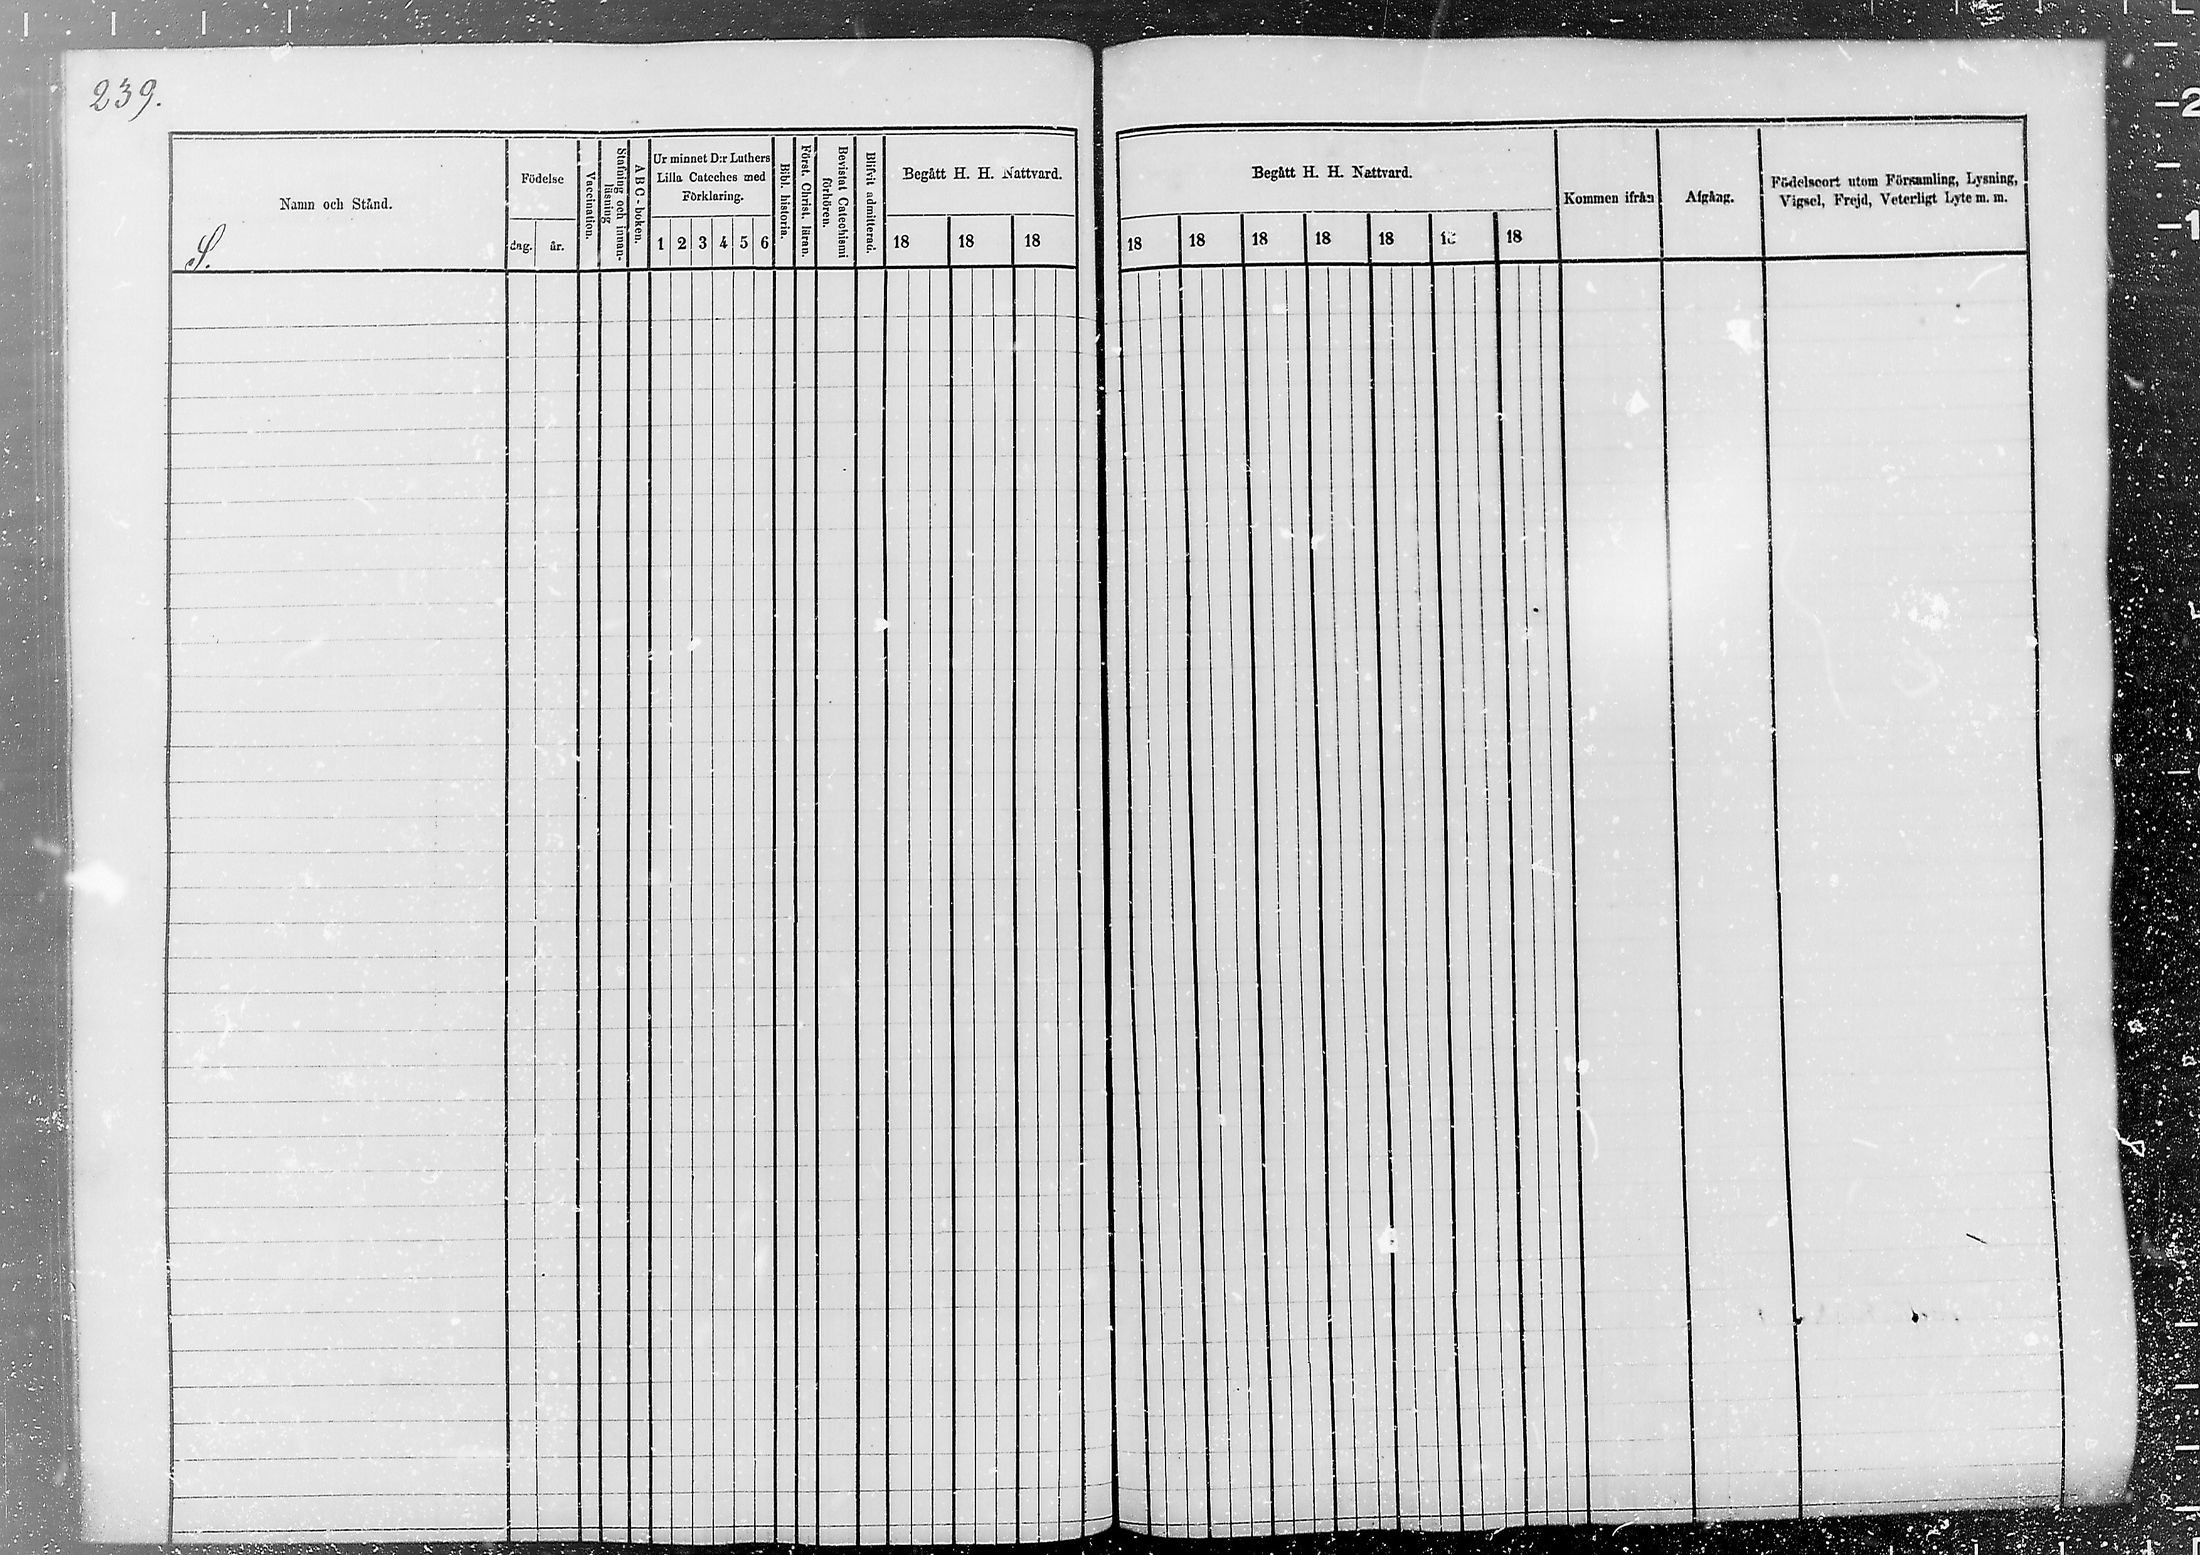 239.
Namn och Stånd.
S.
Födelse
dag.
år.
Vaccination.
Stafning och innan-
läsning
A B C - boken.
Ur minnet D:r Luthers
Lilla Cateches med
Förklaring.
1 2 3 4 5 6
Bibl. historia.
Först. Christ. läran.
Bevistat Catechismi
förhören.
Blifvit admitterad.
Begått H. H. Nattvard.
18 18 18
Begått H. H. Nattvard.
18 18 18 18 18 18 18
Kommen ifrån
Afgång.
Födelseort utom Församling, Lysning,
Vigsel, Frejd, Veterligt Lyte m. m.